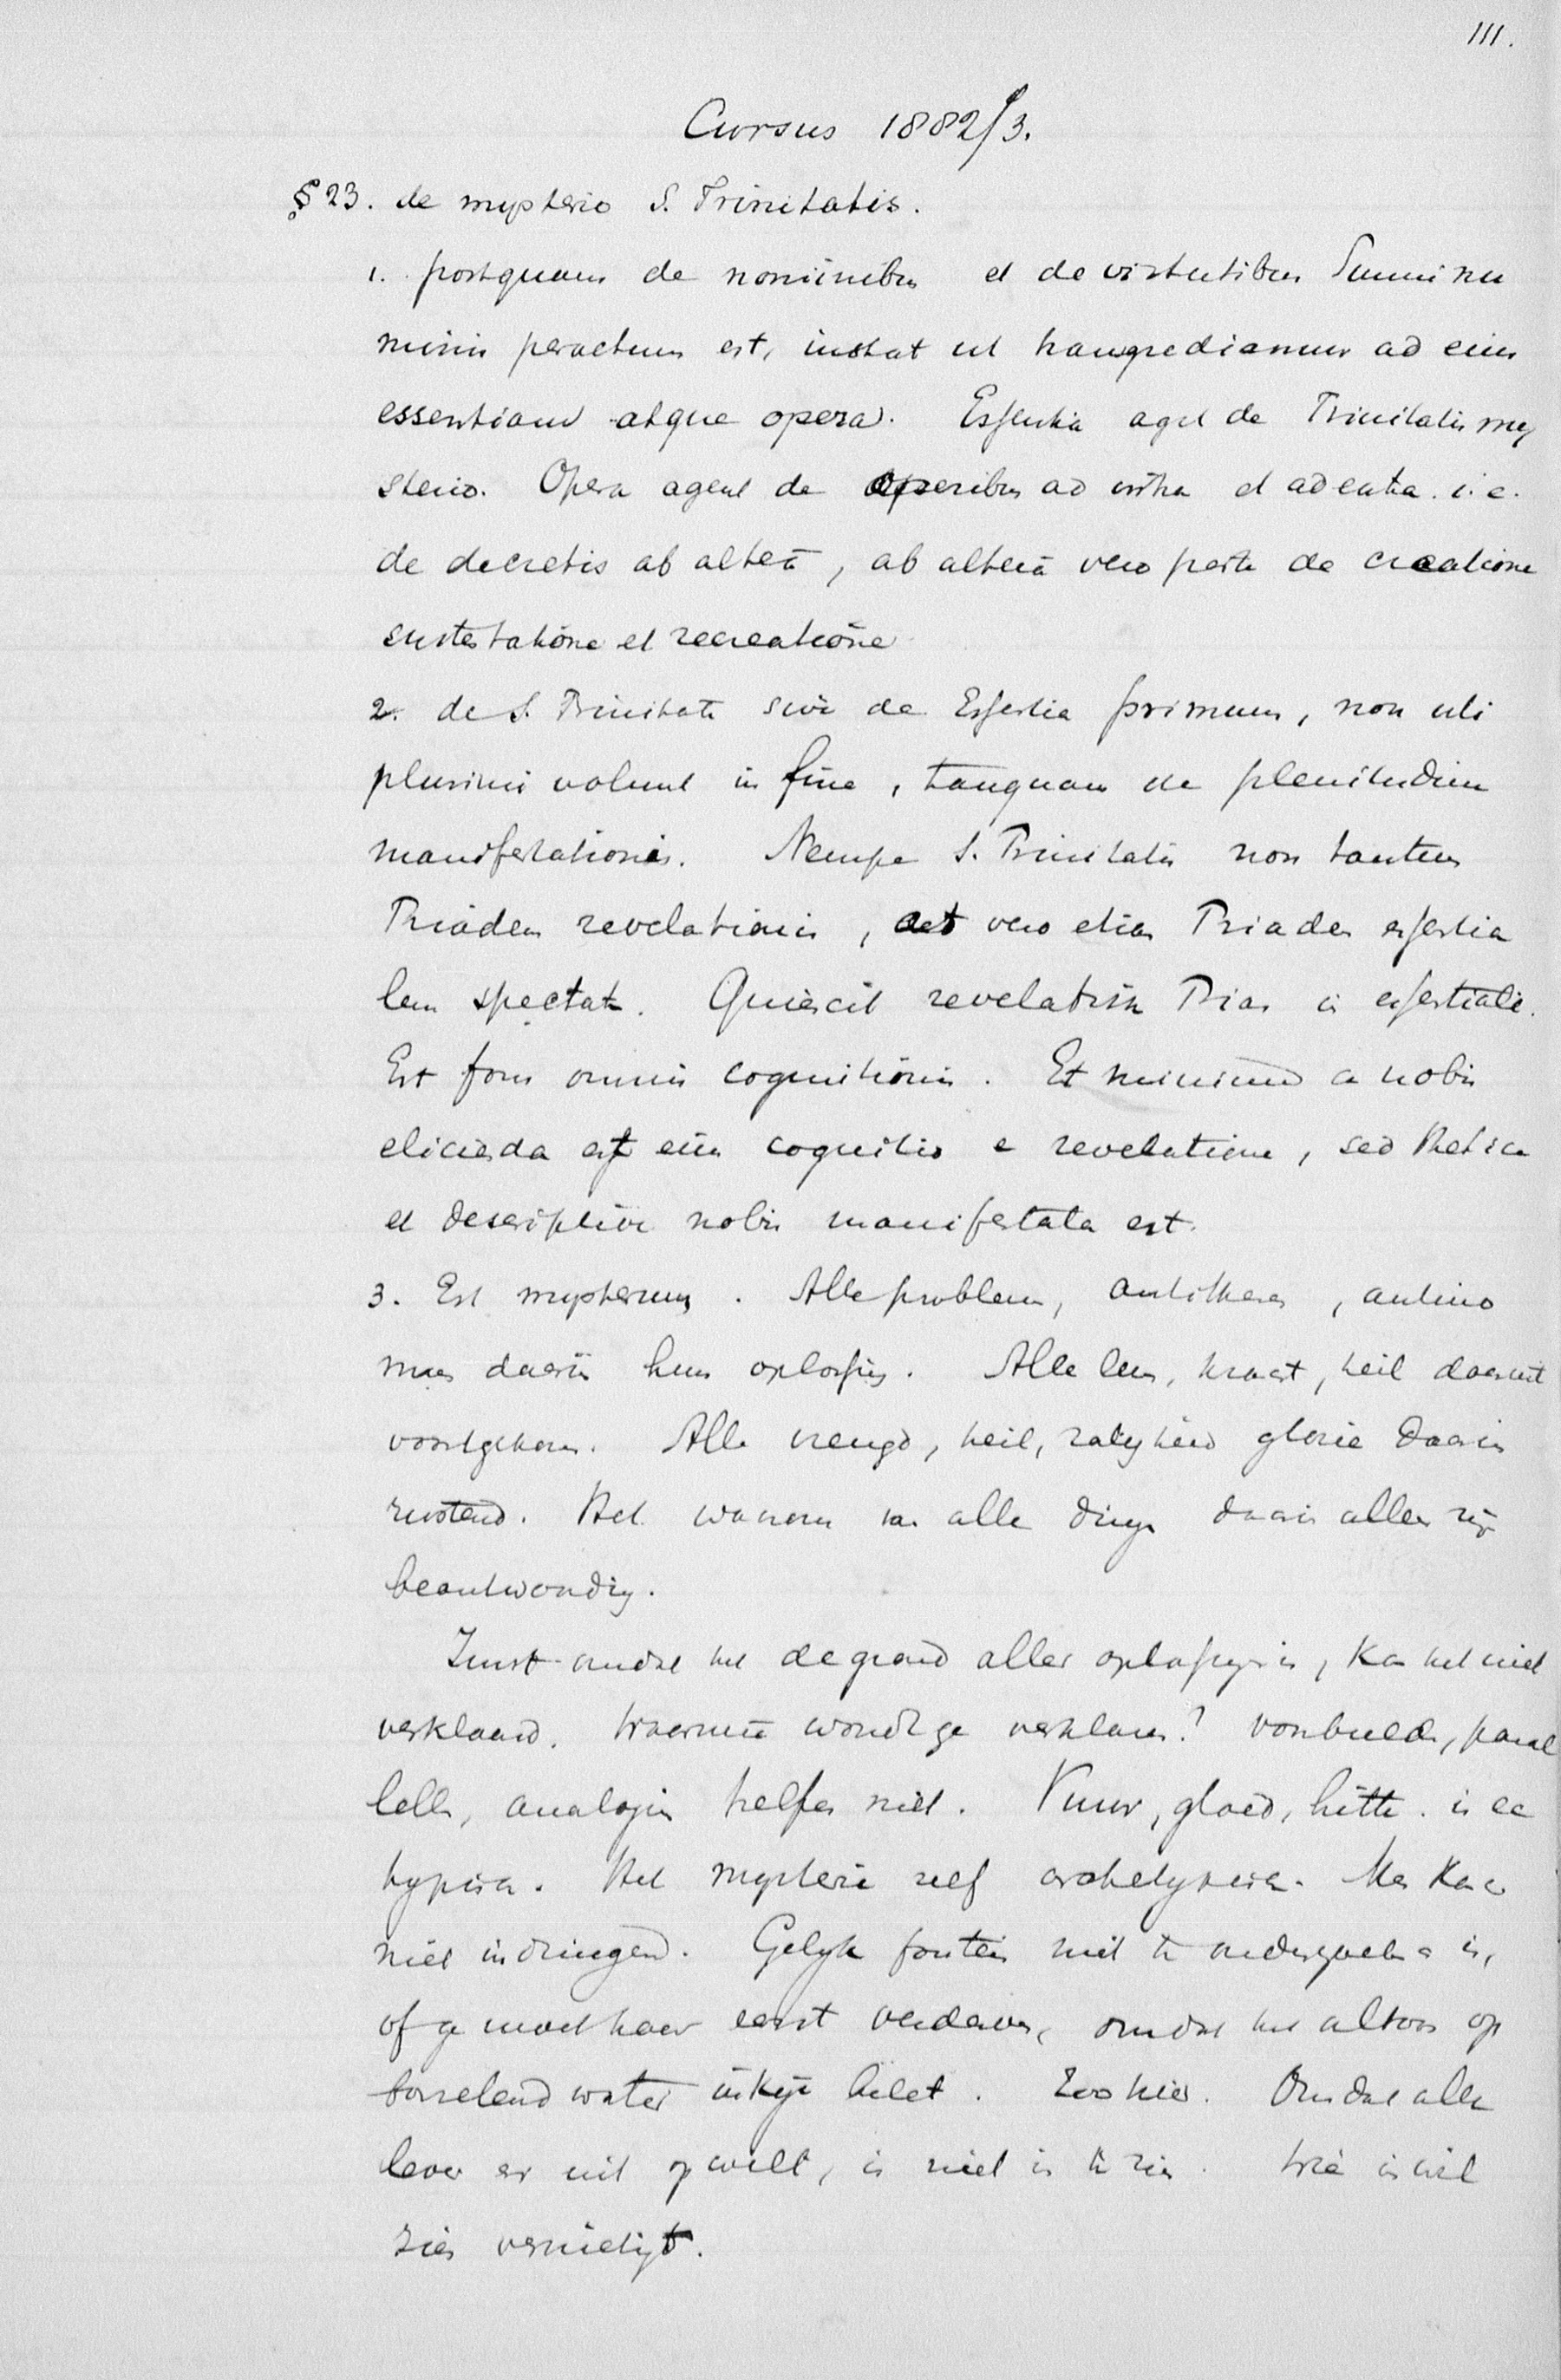 111.
Cursus 1882/3.
§ 23. de mysterio S. Trinitatis.
1. postquam de nominibus et de virtutibus Summi nu
minis peractum est, instat ut transgrediamur ad eius
essentiam atque opera. Essentia agit de Trinitatis my
sterio. Opera agunt de operibus ad intra et ad extra. i.e.
de decretis ab altera, ab altera vero parte de creatione
sustentatione et recreatione
2. de S. Trinitate sive de Essentia primum, non uti
plurimi volunt in fine, tanquam de plenitudine
manifestationis. Nempe S. Trinitatis non tantum
Triadem revelationis, vero etiam Triadem essentia
lem spectat. Quiescit revelationis Trias in essentiali.
Est fons omnis cognitionis. Et a nobis
elicienda est eius cognitio e revelatione, sed thetice
et descriptive nobis manifestata est.
3. Est mysterium. Alle problemen, antithesen, antino
mien daarin hun oplossing. Alle leven, kracht, heil daaruit
voortgekomen. Alle vreugd, heil, zaligheid glorie daarin
rustend. Het waarom van alle dingen daarin aller zijn
beantwoording.
Juist omdat het de grond aller oplossing is, kan het niet
verklaard. Waarmee woudt ge verklaren? voorbeelden, paral
lellen, analogien helpen niet. Vuur, gloed, hitte. is ec
typisch. Het mysterie zelf archetypisch. Men kan er
niet indringen. Gelijk fontein niet te onderzoeken is,
of ge moet haar eerst verdammen, omdat het altoos op
borrelend water inkijk belet. Zoo hier. Omdat alle
leven er uit opwelt, is niet in te zien. Wie in wil
zien vernietigt.